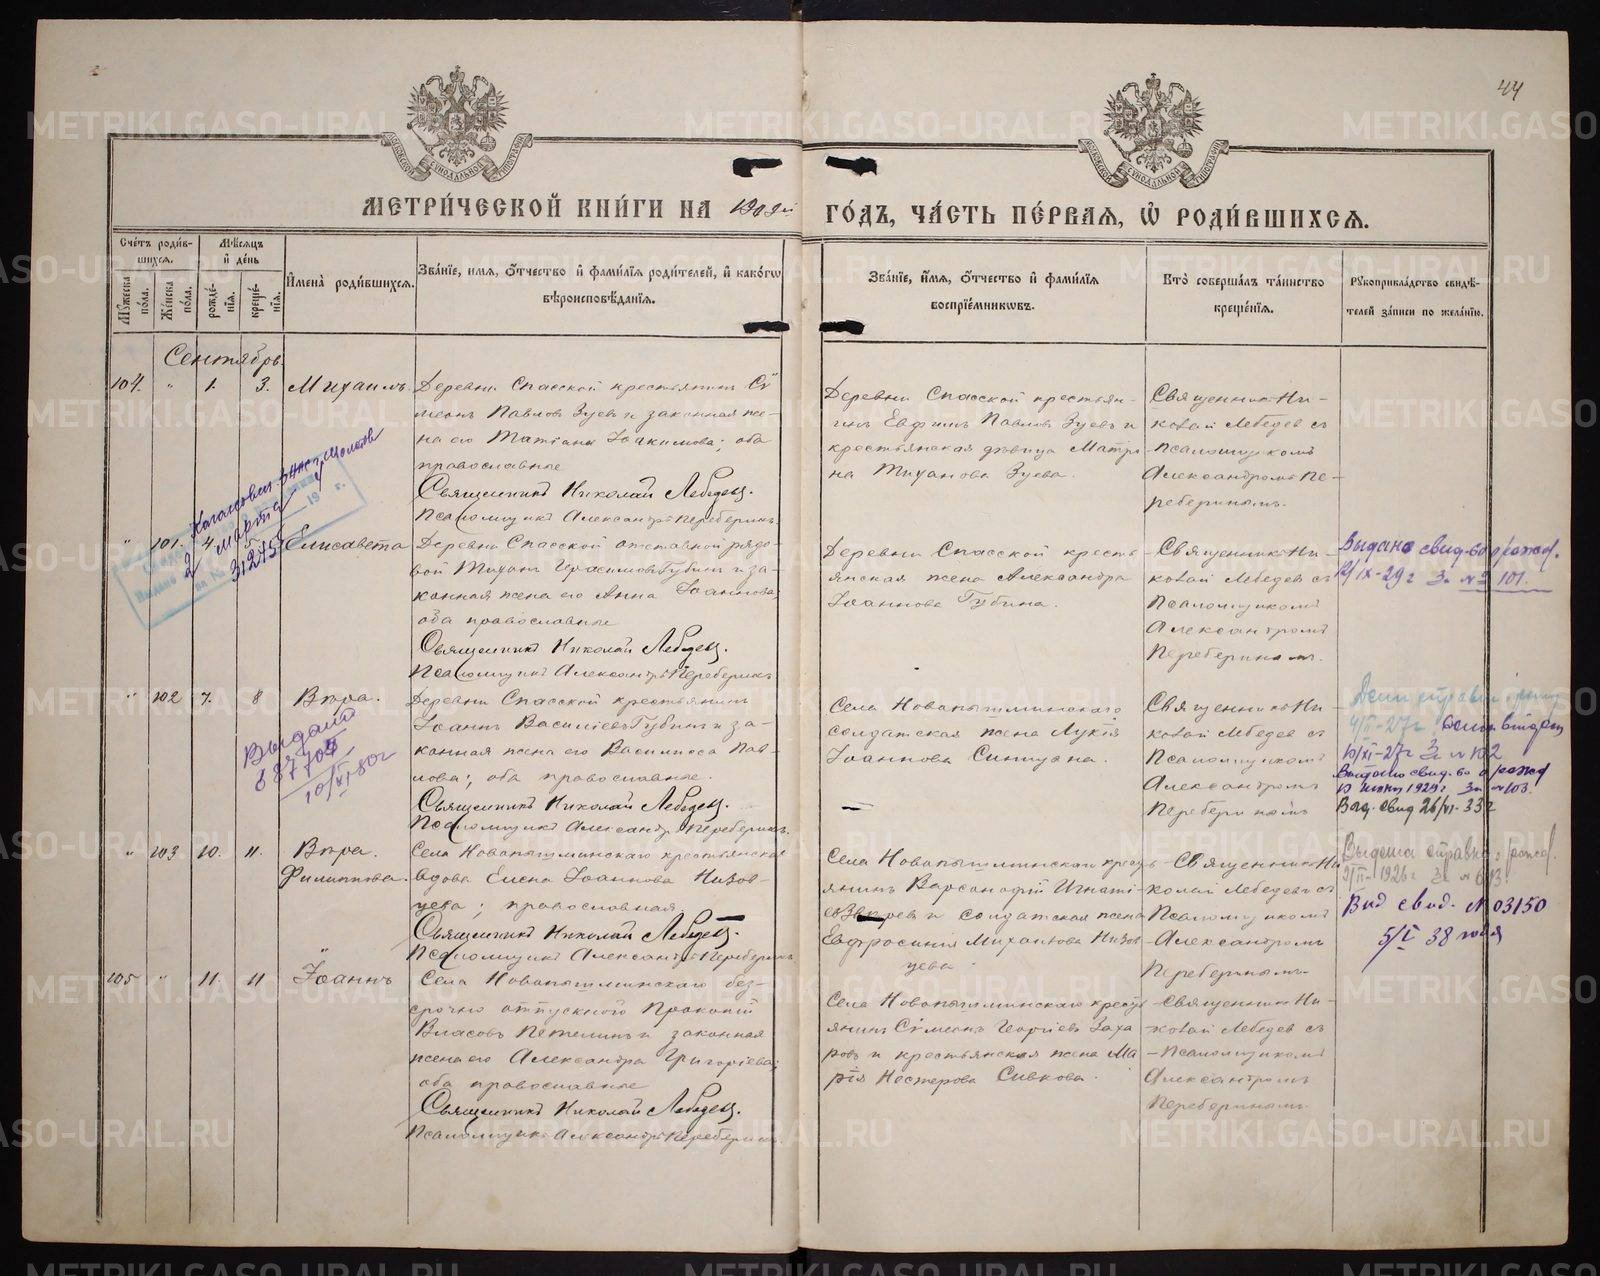 44
МЕТРИ́ЧЕСКОЙ КНИ́ГИ НА 1909й ГО́ДЪ, ЧА́СТЬ ПЕ́РВАЯ, Ѡ РОДИ́ВШИХСЯ.
Сче́тъ роди́вшихся.
Му́жеска по́ла.
Же́нска по́ла.
Мѣ́сяцъ и де́нь
рожде́нїя.
креще́нїя.
И́мена роди́вшихся.
Зва́нїе, имя, о́тчество и фами́лїя роди́телей, и како́гѡ
вѣроисповѣ́данїя.
Зва́нїе, и́мя, о́тчество и фами́лїя
воспрїе́мникѡвъ.
Кто̀ соверша́лъ та́инство
креще́нїя.
Рꙋкоприкла́дство свидѣ́-
телей за́писи по жела́нїю.
Сентябрь
104. " 1. 3. Михаилъ.
Деревни Спасской крестьянинъ Сѵ-
меонъ Павловъ Зуевъ и законная же-
на его Татіана Іоакимова; оба
православные
Священникъ Николай Лебедевъ.
Псаломщикъ Александръ Переберинъ.
Деревни Спасской крестьян-
инъ Евфимъ Павловъ Зуевъ и
крестьянская дѣвица Матро
на Тиханова Зуева.
Священникъ Ни-
колай Лебедев съ
Псаломщикомъ
Александромъ Пе-
реберинымъ.
" 101. 4. Елисавета
Деревни Спасской отставной рядо-
вой Тихонъ Герасимовъ Губинъ и за-
конная жена его Анна Іоаннова;
оба православные
Священникъ Николай Лебедевъ.
Псаломщикъ Александръ Переберинъ
Деревни Спасской кресть-
янская жена Александра
Іоаннова Губина.
Священникъ Ни-
колай Лебедев съ
Псаломщикомъ
Александромъ
Переберинымъ.
Выдано свид-во о рожд.
12/IX-29 г за № 101.
2 марта
312757
" 102 7. 8 Вѣра.
Деревни Спасской крестьянинъ
Іоаннъ Василіевъ Губинъ и за-
конная жена его Василиса Пав-
лова; оба православные.
Священникъ Николай Лебедевъ.
Псаломщикъ Александръ Переберинъ.
Села Новопышминскаго
солдатская жена Лукія
Іоаннова Синицина.
Священникъ Ни-
колай Лебедев съ
Псаломщикомъ
Александромъ
Переберинымъ
10/XI-27 г за № 102
Выдано свид-во о рожд
1929 г за № 103.
Выд. свид 26/VI-33 г
Выдано
" 103 10. 11. Вѣра.
Филиппова.
Села Новопышминскаго крестьянская
вдова Елена Іоаннова Низов-
цева; православная.
Священникъ Николай Лебедевъ.
Псаломщикъ Александръ Переберинъ
Села Новопышминскаго крест-
янинъ Варсанофій Игнаті-
евъ Звѣревъ и солдатская жена
Евфросинія Михаилова Низов
цева
Священникъ Ни
колай Лебедевъ съ
Псаломщикомъ
Александромъ
Переберинымъ.
Выдана справка о рожд.
1926 г за №
Выд свид. № 03150
5/I 38 года
105 " 11. 11 Іоаннъ
Села Новопышминскаго без-
срочно отпускного Прокопій
Власовъ Петелинъ и законная
жена его Александра Григоріева;
оба православные
Священникъ Николай Лебедевъ.
Псаломщикъ Александръ Переберинъ.
Села Новопышминскаго крест
янинъ Сѵмеонъ Георгіевъ Заха
ровъ и крестьянская жена Ма
рія Нестерова Сивкова.
Священникъ Ни-
колай Лебедев съ
Псаломщикомъ
Александромъ
Переберинымъ.
METRIKI.GASO-URAL.RU